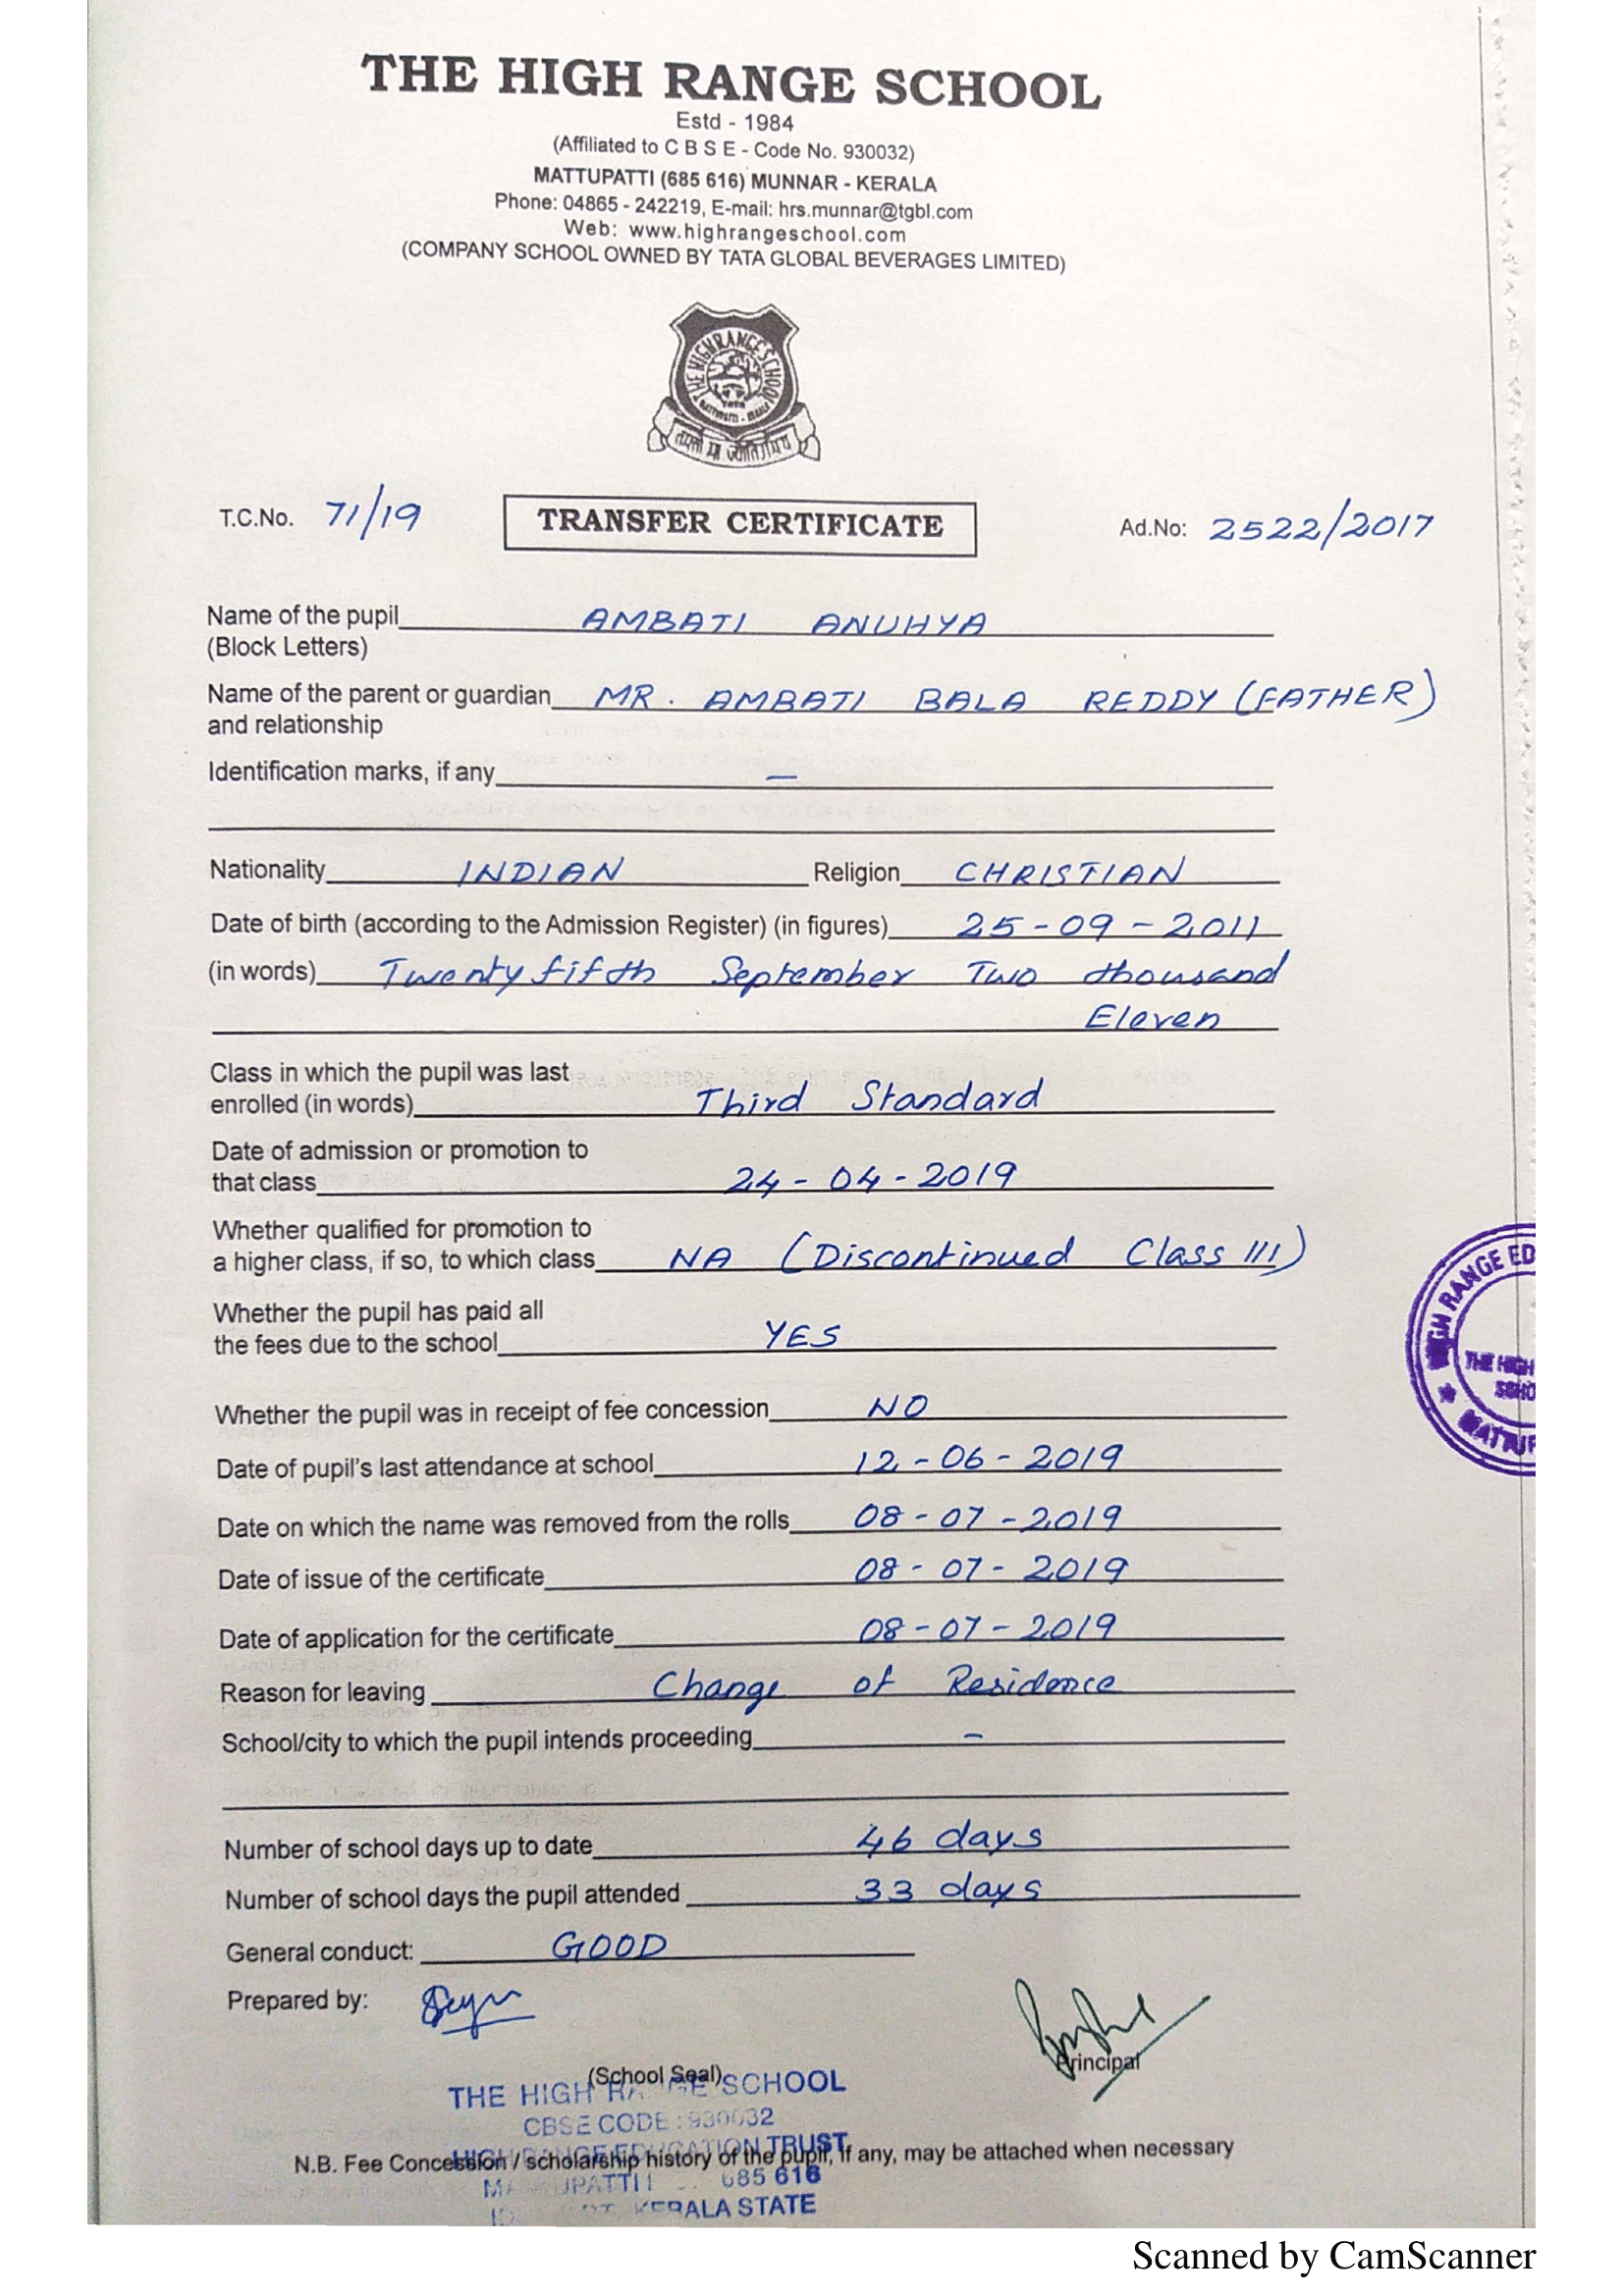 THE HIGH RANGE SCHOOL
Estd - 1984
(Affiliated to C B S E - Code No. 930032)
MATTUPATTI (685 616) MUNNAR - KERALA
Phone: 04865 - 242219, E-mail: hrs.munnar@tgbl.com
Web: www.highrangeschool.com
(COMPANY SCHOOL OWNED BY TATA GLOBAL BEVERAGES LIMITED)
THE HIGH RANGE SCHOOL
T.C.No. 71/19 TRANSFER CERTIFICATE Ad.No: 2522/2017
Name of the pupil AMBATI ANUHYA
(Block Letters)
Name of the parent or guardian MR. AMBATI BALA REDDY (FATHER)
and relationship
Identification marks, if any —
Nationality INDIAN Religion CHRISTIAN
Date of birth (according to the Admission Register) (in figures) 25-09-2011
(in words) Twenty fifth September Two thousand
Eleven
Class in which the pupil was last
enrolled (in words) Third Standard
Date of admission or promotion to
that class 24-04-2019
Whether qualified for promotion to
a higher class, if so, to which class NA (Discontinued Class III)
Whether the pupil has paid all
the fees due to the school YES
Whether the pupil was in receipt of fee concession NO
Date of pupil's last attendance at school 12-06-2019
Date on which the name was removed from the rolls 08-07-2019
Date of issue of the certificate 08-07-2019
Date of application for the certificate 08-07-2019
Reason for leaving Change of Residence
School/city to which the pupil intends proceeding –
Number of school days up to date 46 days
Number of school days the pupil attended 33 days
General conduct: GOOD
Prepared by:
Principal
(School Seal)
THE HIGH RANGE SCHOOL
CBSE CODE : 930032
HIGH RANGE EDUCATION TRUST
N.B. Fee Concession / scholarship history of the pupil, if any, may be attached when necessary
685 616
KERALA STATE
HIGH RANGE ED
THE HIGH
SCHO
MATTUP
Scanned by CamScanner